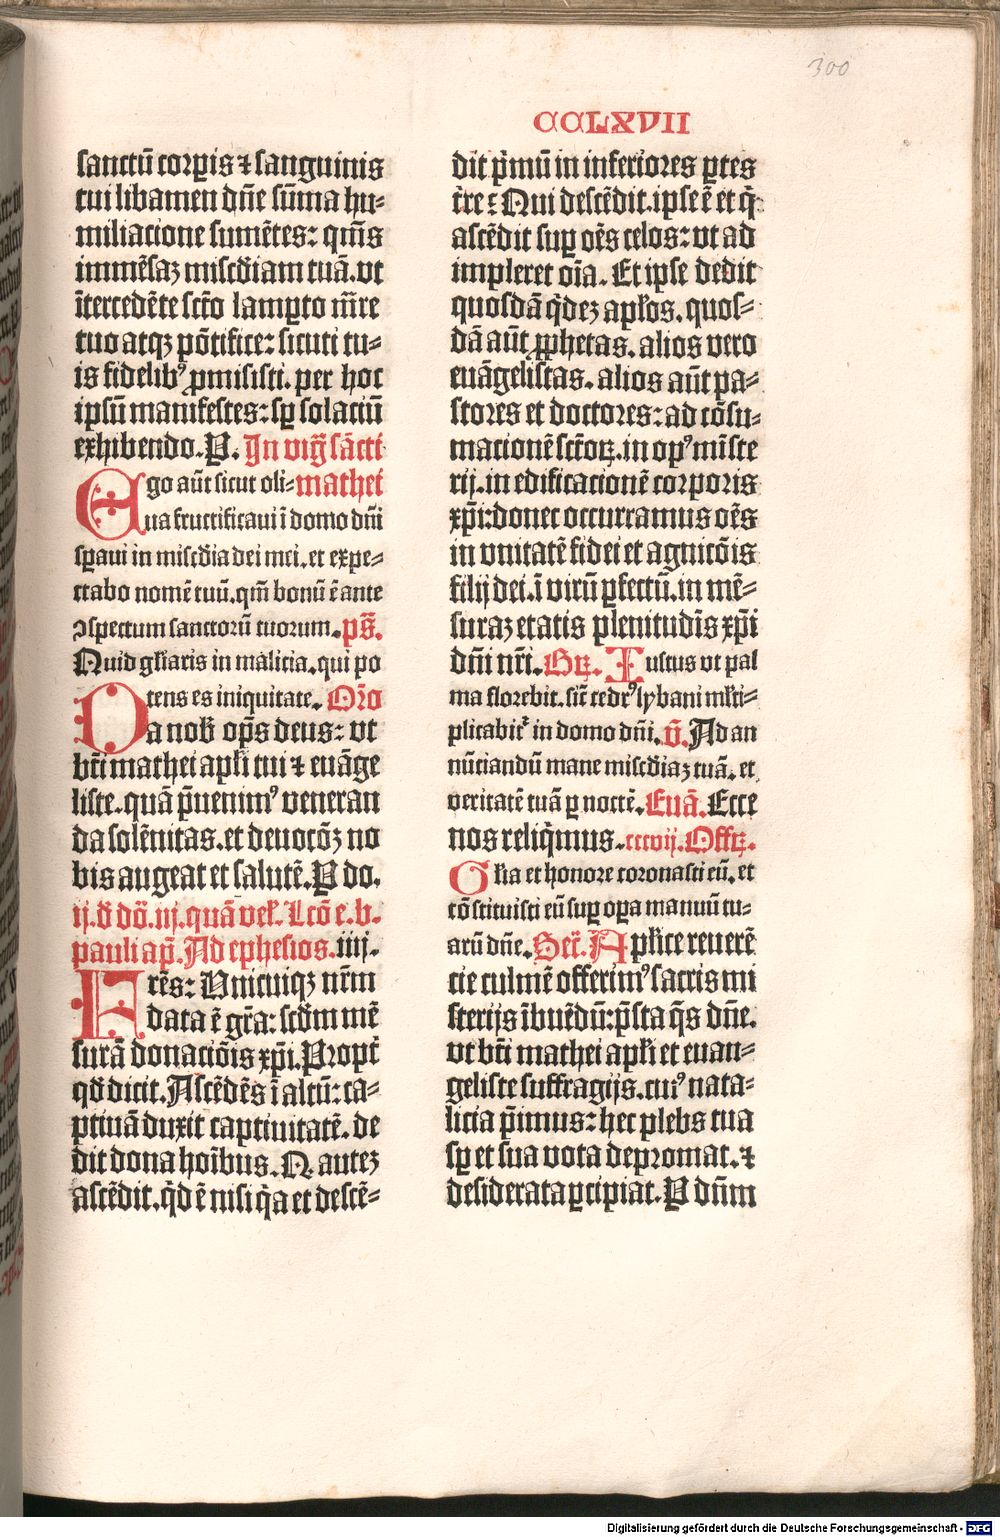 300
CCLXVII
sanctū corp̄is ⁊ sanguinis
tui libamen dn̄e sūma hu-
miliacione sumētes: qm̄s
immēsaꝫ mis̄cdiam tuā. vt
ītercedēte sctō lamp̄to m̄re
tuo atqꝫ pōtifice: sicuti tu-
is fidelibꝰ ꝓmisisti. per hoc
ipsū manifestes: sꝑ solaciū
exhibendo. P. In vigł sācti
Ego aūt sicut oli- mathei
ua fructificaui ī domo dn̄i
sꝑaui in mis̄cdia dei mei. et expe-
ctabo nomē tuū. qm̄ bonū ē ante
ꝯspectum sanctorū tuorum. ps̄.
Quid głiaris in malicia. qui po
tens es iniquitate. Or̄o
Da nob̄ op̄s deus: vt
bt̄i mathei apłi tui ⁊ euāge
liste. quā p̄uenimꝰ veneran
da solēnitas. et deuocōꝫ no
bis augeat et salutē. P do.
ij. đ dō. iij. quā vel̄. Lc̄o e. b.
pauli ap̄. Ad ephesios. iiij.
Frēs: Vnicuiqꝫ nr̄m
data ē gr̄a: scd̄m mē
surā donaciōis xp̄i. Propt̄
qd̄ dicit. Ascēdēs ī altū: ca-
ptiuā duxit captiuitatē. de
dit dona hoībus. Q autēꝫ
ascēdit. qd̄ ē nisi q̄a et descē-
dit p̄mū in inferiores ꝑtes
tr̄e: Qui descēdit. ipse ē et q̄
ascēdit suꝑ oēs celos: vt ad
impleret oīa. Et ipse dedit
quosdā q̄deꝫ apłos. quos-
dā aūt ꝓphetas. alios vero
euāgelistas. alios aūt pa-
stores et doctores: ad cōsu-
macionē sctōꝝ. in opꝰ mīste
rij. in edificacionē corporis
xp̄i: donec occurramus oēs
in vnitatē fidei et agnicōis
filij dei. ī virū ꝑfectū. in mē-
suraꝫ etatis plenitudīs xp̄i
dn̄i nr̄i. Gꝝ. Iustus vt pal
ma florebit. sic̄ cedrꝰ lybani mlti-
plicabit᷑ in domo dn̄i. v̄. Ad an
nūciandū mane mis̄cdiaꝫ tuā. et
veritatē tuā ꝑ noctē. Euā. Ecce
nos reliq̄mus. cccvij. Offꝝ.
Głia et honore coronasti eū. et
cōstituisti eū suꝑ oꝑa manuū tu-
arū dn̄e. Secr̄. Apłice reuerē
cie culmē offerimꝰ sacris mi
sterijs ībuēdū: p̄sta q̄s dn̄e.
vt bt̄i mathei apłi et euan-
geliste suffragijs. cuiꝰ nata-
licia p̄imus: hec plebs tua
sꝑ et sua vota depromat. ⁊
desiderata ꝑcipiat. P dn̄m
Digitalisierung gefördert durch die Deutsche Forschungsgemeinschaft - DFG